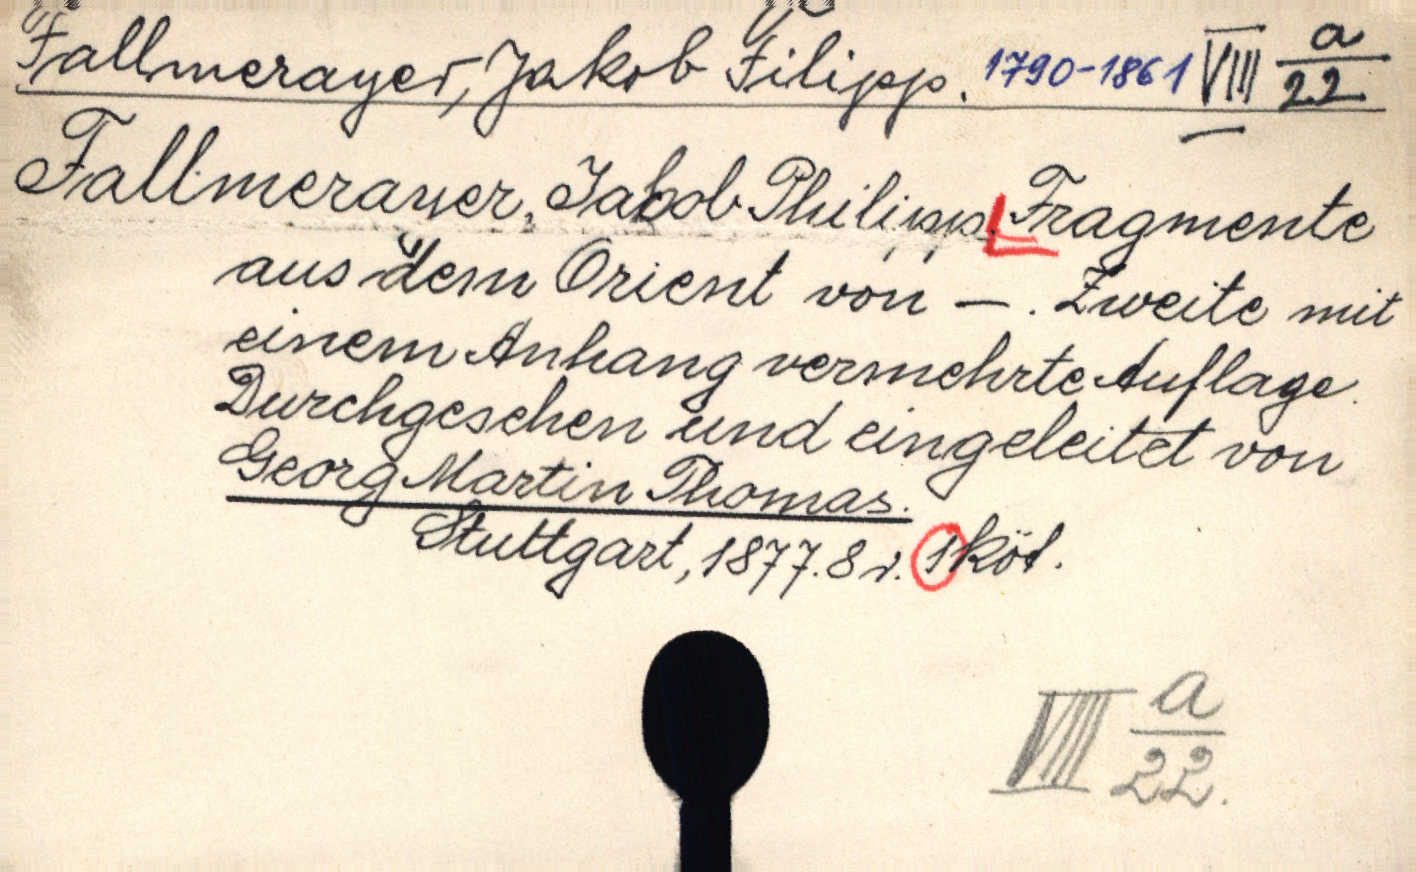 Fallmerayer, Jakob Filipp. 1790-1861 VIII a/22
Fallmerayer, Jakob Philipp. Fragmente
aus dem Orient von —. Zweite mit
einem Anhang vermehrte Auflage.
Durchgesehen und eingeleitet von
Georg Martin Thomas.
Stuttgart, 1877. 8 r. 1 köt.
VIII a/22.